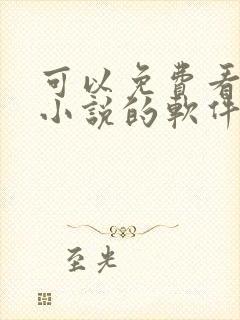 可以免費看
小說的軟件
至光